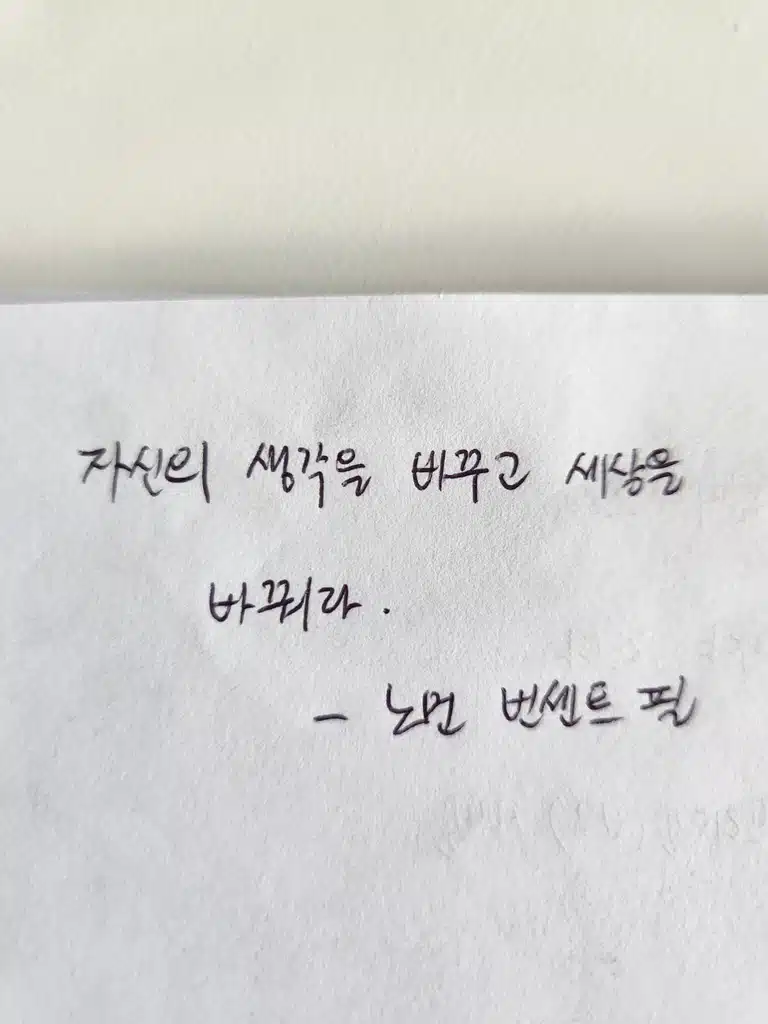 자신의 생각을 바꾸고 세상을
바꿔라.
- 노먼 번센트 필